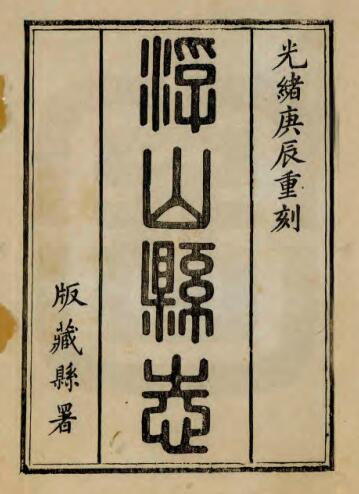 光緒庚辰重刻
浮山縣志
版藏縣署